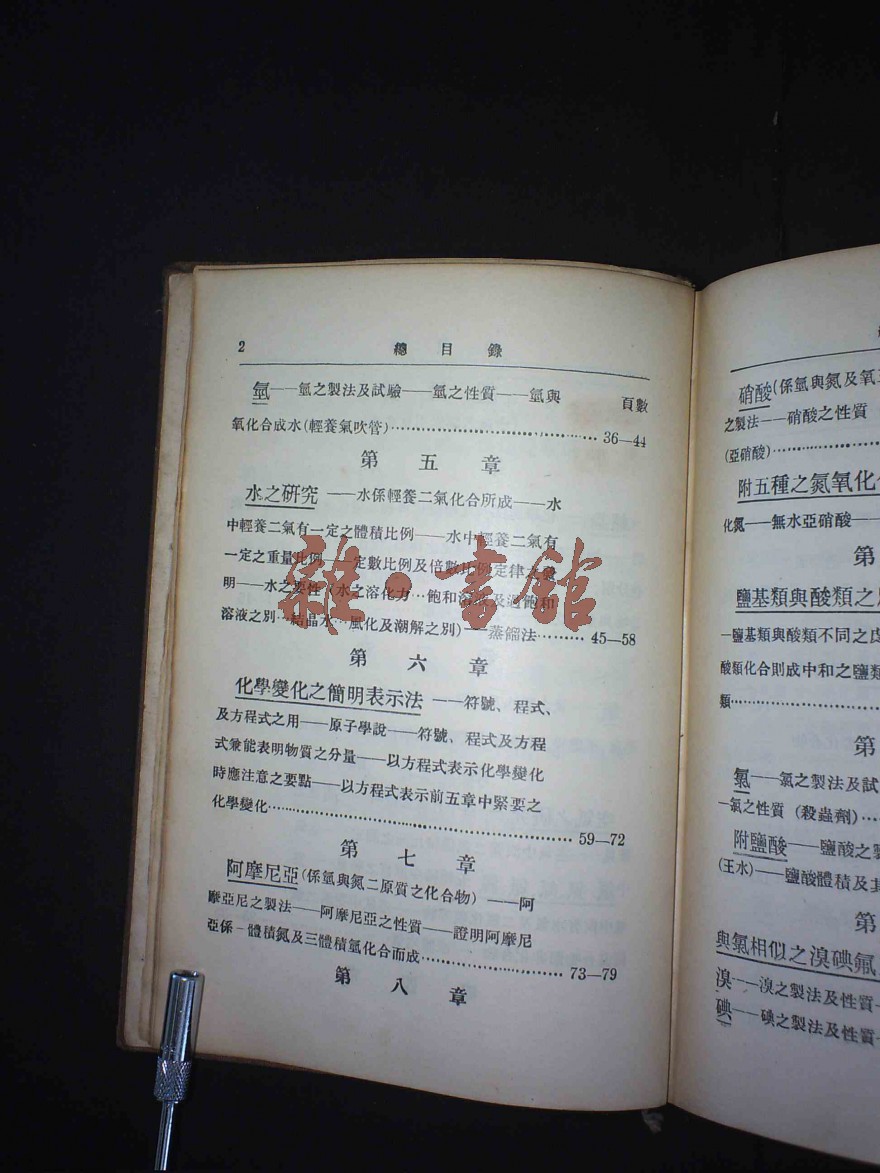 2 總目錄
氫——氫之製法及試驗——氫之性質——氫與 頁數
氧化合成水(輕養氣吹管)…………………………36—44
第五章
水之硏究——水係輕養二氣化合所成——水
中輕養二氣有一定之體積比例——水中輕養二氣有
一定之重量比例——定數比例及倍數比例定律
明——水之要性(水之溶化力…飽和溶液及過飽和
溶液之別…結晶水…風化及潮解之別)——蒸餾法………45—58
第六章
化學變化之簡明表示法——符號、程式、
及方程式之用——原子學說——符號、程式及方程
式兼能表明物質之分量——以方程式表示化學變化
時應注意之要點——以方程式表示前五章中緊要之
化學變化…………………………………………59—72
第七章
阿摩尼亞(係氫與氮二原質之化合物)——阿
摩亞尼之製法——阿摩尼亞之性質——證明阿摩尼
亞係一體積氮及三體積氫化合而成……………………73—79
第八章
硝酸(係氫與氮及氧
之製法——硝酸之性質
(亞硝酸)……………
附五種之氮氧化
化氮——無水亞硝酸——
第
鹽基類與酸類之
—鹽基類與酸類不同之
酸類化合則成中和之鹽類
類……………………
第
氯——氯之製法及試
—氯之性質(殺蟲劑)…
附鹽酸——鹽酸之
(王水)——鹽酸體積及其
第
與氯相似之溴碘氟
溴——溴之製法及性質
碘——碘之製法及性質
雜·書館